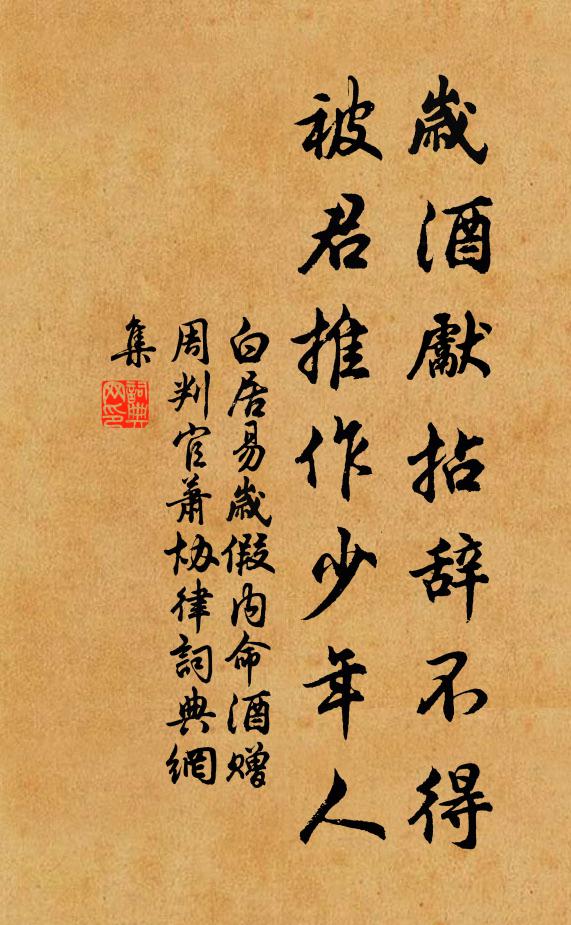 歲酒獻拈辞不得
被君推作少年人
白居易歲假内命酒赠
周判官萧协律詞典網
集
詞典
网印